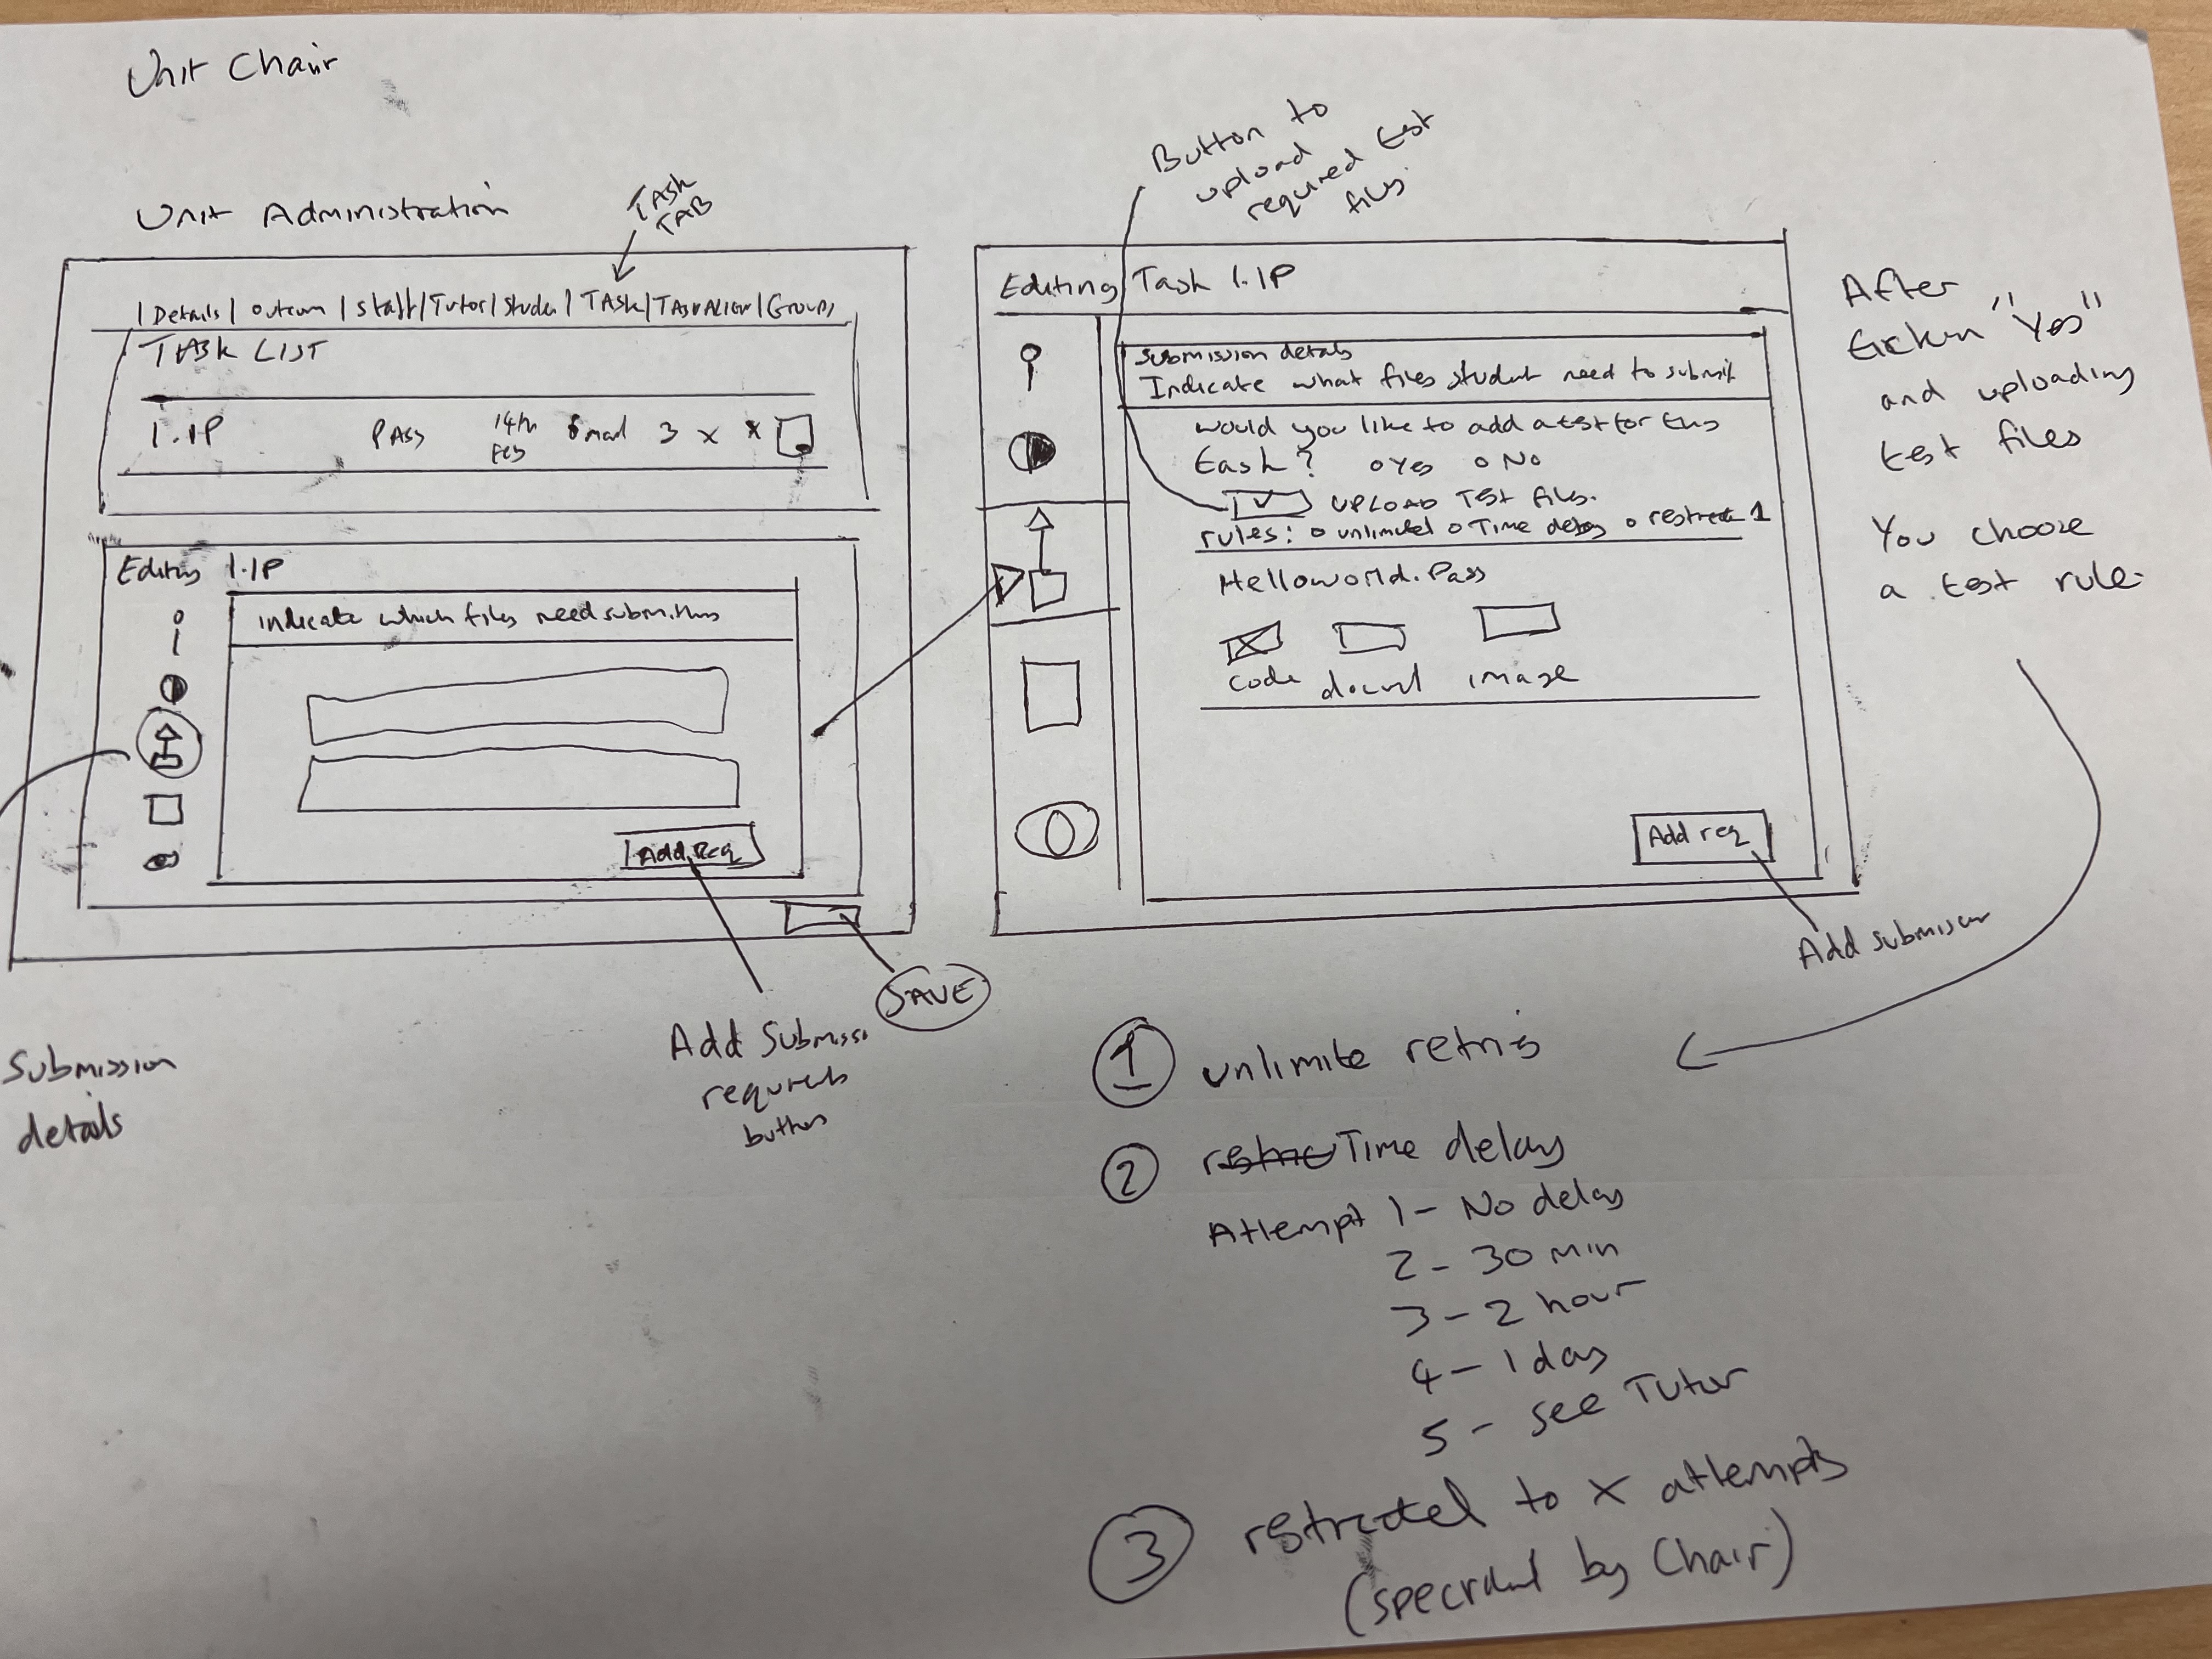 Unit Chair
Unit Administration
TASK
TAB
| Details | outcom | staff | Tutor | Studen | TASK | TASK ALIGN | Groups
TASK LIST
1.1P PASS 14th Feb 3 x x
Editing 1.1P
indicate which files need submitting
Add Req
SAVE
Add Submissi
button
Submission
details
Button to
upload
required test
files
Editing Task 1.1P
Submission details
Indicate what files student need to submit
would you like to add a test for this
task? o Yes o No
UPLOAD TEST files.
rules: o unlimited o Time delay o restrict 1
Helloworld.Pass
code image
Add req
Add submission
After
"Yes"
and uploading
test files
You choose
a test rule
1 unlimite retris
2 Time delay
Attempt 1 - No delay
2 - 30 min
3 - 2 hour
4 - 1 day
5 - see Tutor
3 restricted to x attempts
(by Chair)